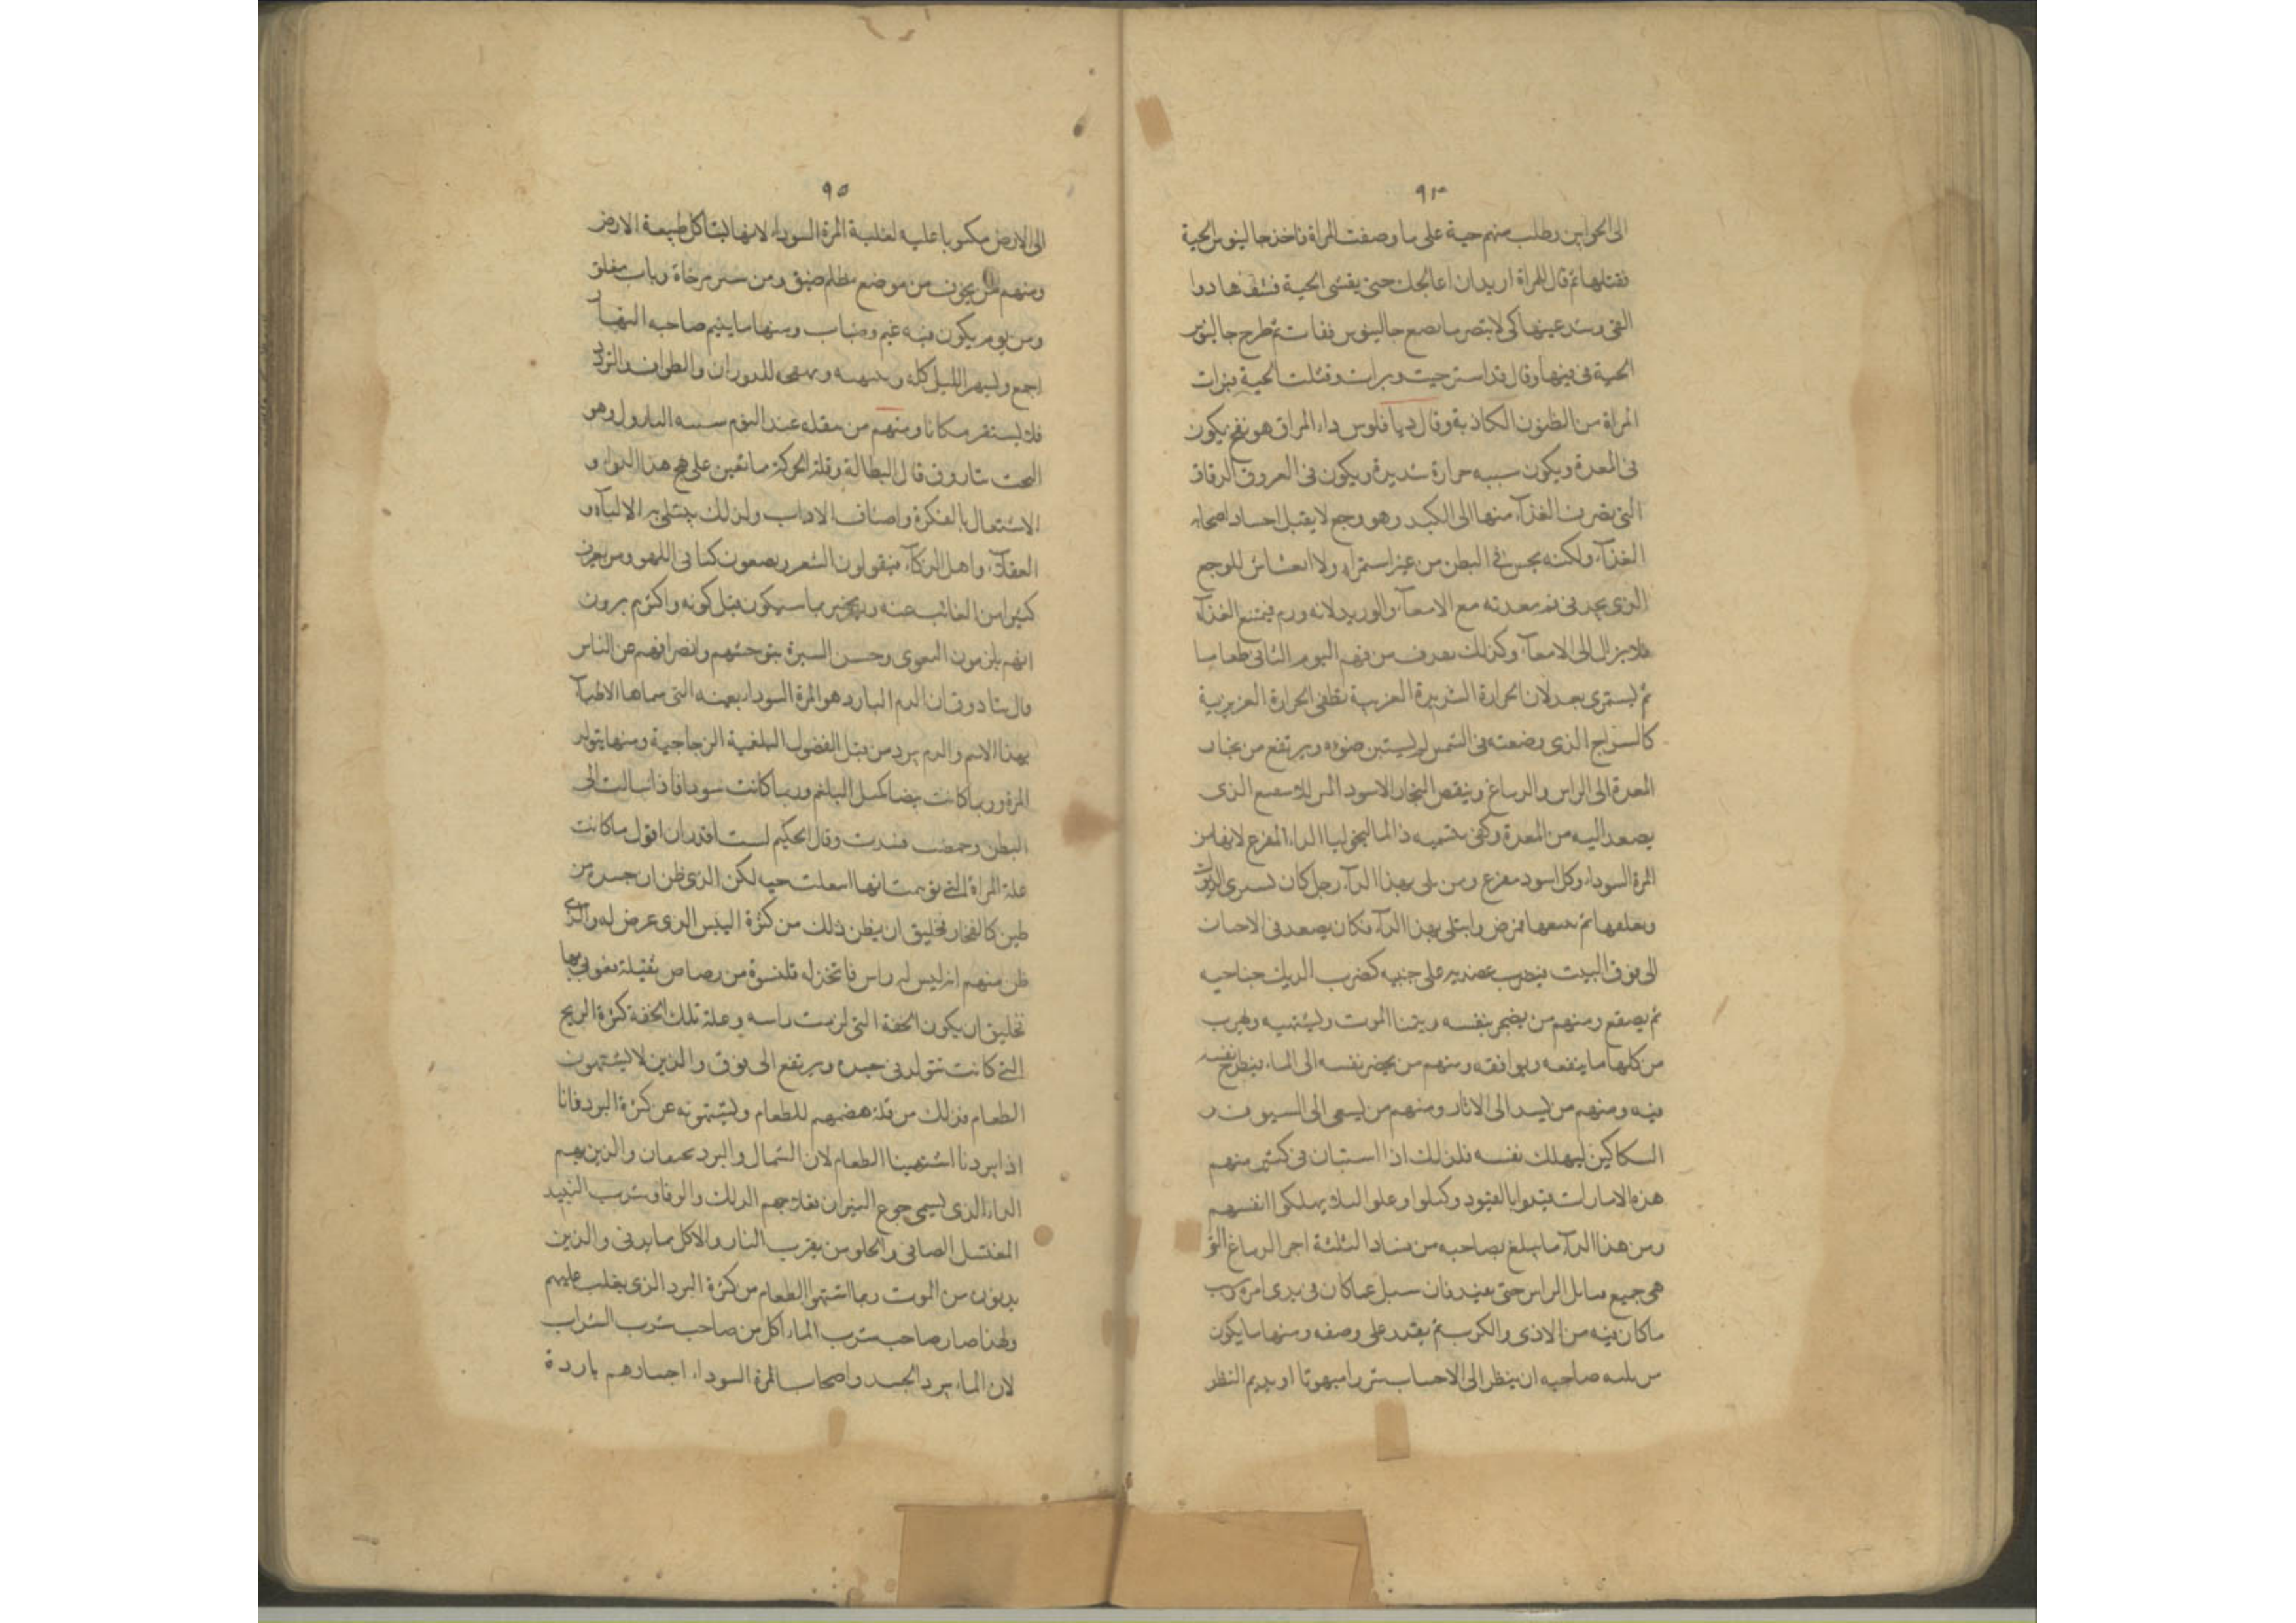 ٩٤
الى الحوابين وطلب منهم حية على ما وصفت المراة فاخذ جالينوس الحية
فقتلها ثم قال للمراة اريد ان اعالجك حتى يقئ الحية فسقاها دوا
القئ وشد عينها كى لا تبصر ما يصنع جالينوس فقات ثم طرح جالينوس
الحية فى قيئها وقال قد استرحيت وبرات وقتلت الحية فبرات
المراة من الظنون الكاذبة وقال ديافلوس داء المراق هو نفخ يكون
فى المعدة ويكون سببه حرارة شديرة ويكون فى العروق الرقاق
التى يصرف الغذآء منها الى الكبد وهو وجع لا يقبل اجساد اصحابه
الغذآء ولكنه يحبس فى البطن من غير استمراء ولا للوجع
الذى يجد فى فم معدته مع الامعآء والوريد لانه ورم فيمتنع الغذآء
فلا يزال الى الامعآء وكذلك يعرف من فيهم اليوم الثانى طعاما
ثم يستمرى بعد لان الحرارة الشريرة الغريبة تطفى الحرارة الغريزية
كالسراج الذى وضعته فى الشمس لم يستبن ضوءه ويرتفع من بخار
المعدة الى الراس والدماغ وينقص البخار الاسود الذى
يصعد اليه من المعدة وكفى بتسميه ذا الماليخوليا الداء المفزع لانها من
المرة السوداء وكل اسود مفزع ومن بلى بهذا الدآء رجل كان يسرى الديوك
ويعلفها ثم يبيعها فمرض وابتلى بهذا الدآء فكان يصعد فى الاحيان
الى فوق البيت فيضرب عضديه على جنبيه كضرب الديك جناحيه
ثم يصقع ومنهم من يضجر بنفسه ويتمنا الموت ويشتهيه ويهرب
من كلها ما ينفعه ويوافقه ومنهم من يحضر نفسه الى الماء فيطرح نفسه
فيه ومنهم من الى الابار ومنهم من يسعى الى السيوف و
السكاكين ليهلك نفسه فلذلك اذا استبان فى كثير منهم
هذه الامارات قيدوا بالقيود وكبلوا وغلوا لئلا يهلكوا انفسهم
ومن هذا الدآء ما يبلغ بصاحبه من فساد الثلثة اجزا الدماغ التى
هى جميع الراس حتى يفيد فان سيل عما كان فى بدى امره وسب
ما كان فيه من الاذى والكرب لم يقدر على وصفه ومنها ما يكون
من صاحبه ان ينظر الى الاحساب شزرا مبهوتا او يديم النظر
٩٥
الى الارض مكبوبا عليه لغلبة المرة السوداء لانها تشاكل طبيعة الارض
ومنهم من يخوف من موضع مظلم ضيق ومن ستر مرخاة وباب مغلق
ومن يوم يكون فيه غيم وضباب ومنها ما ينيم صاحبه النهار
اجمع ويسهر الليل كله للدوران والطواف والتردد
فلا يستقر مكانا ومنهم من عند النوم وهو
البحث ثاروفى قال البطالة وقلة الحركة ما يعين على هيج هذا الدواء و
الاشتغال بالفكرة واصناف الاداب ولذلك يبتلى به الالباء و
العقلآء واهل الذكآء فيقولون الشعر ويضعون كتبا فى اللهو ومن يعرف
كثيرا من الغائب عنه ويخبر بما سيكون قبل كونه واكثرهم يرون
انهم يلزمون التقوى وحسن السيرة بتوحشهم وانصرافهم عن الناس
قال ثادوق ان الدم البارد هو المرة السوداء بعينه التى سماها الاطبآء
بهذا الاسم والدم يبرد من قبل الفضول البلغمية الزجاجية ومنها يتولد
المرة وربما كانت بيضا كمثل البلغم وربما كانت سودا فاذا سالت الى
البطن وحمضت فسدت وقال الحكيم لست اقدر ان اقول ما كانت
علة المراة التى توهمت انها ابتلعت حية لكن الذى ظن ان جسده من
طين كالفخار فخليق ان يظن ذلك من كثرة اليبس الذى عرض له والذى
ظن منهم انه ليس له راس فاتخذ له قلنسوة من رصاص ثقيلة فعولج بها
فخليق ان يكون الخفة التى لزمت راسه وعلة تلك الخفة كثرة الريح
التى كانت تتولد فى جسده ويرتفع الى فوق والذين لا يشتهون
الطعام فذلك من قلة هضمهم للطعام ويشتهونه عن كثرة البرد فانا
اذا بردنا اشتهينا الطعام لان الشمال والبرد يجيعان والذين بهم
الداء الذى يسمى جوع البقر ان علاجهم الدلك والرقاد وشرب النبيد
المعتسل الصافى والحلو من يقرب النار والاكل مما يدفى والذين
يدنون من الموت ربما اشتهوا الطعام من كثرة البرد الذى يغلب عليهم
ولهذا صار صاحب شرب الماء اكل من صاحب شرب الشراب
لان الماء يبرد الجسد واصحاب المرة السوداء اجسادهم باردة